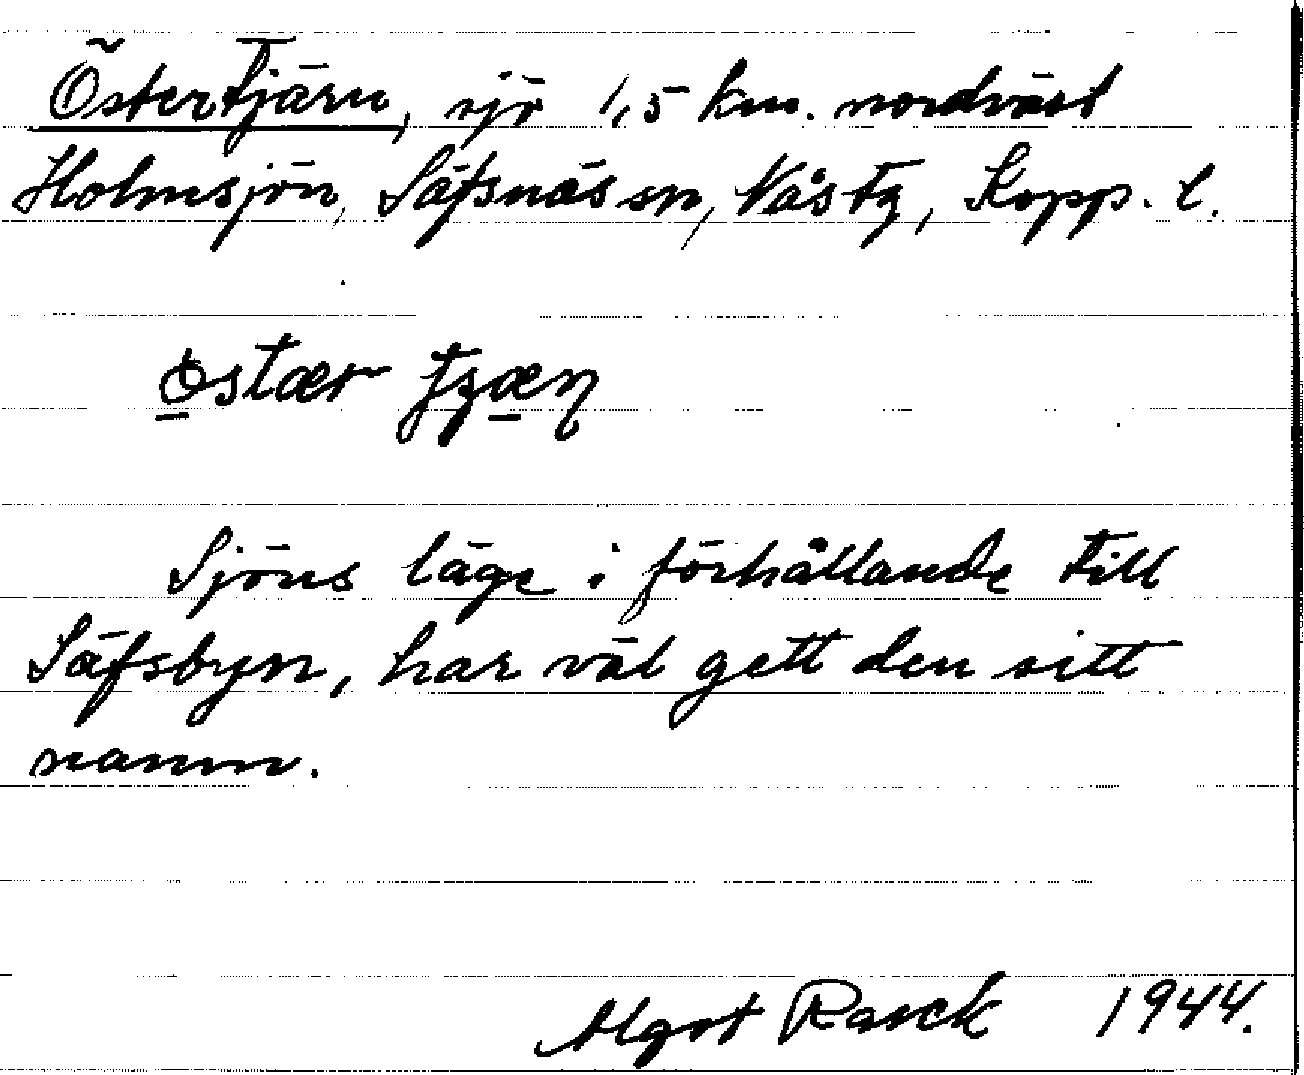 Östertjärn, sjö 1,5 km. nordväst
Holmsjön, Säfsnäs sn, Nås tg, Kopp. l.
Sjöns läge i förhållande till
Säfsbyn, har väl gett den sitt
namn.
Algot Rasck 1944.